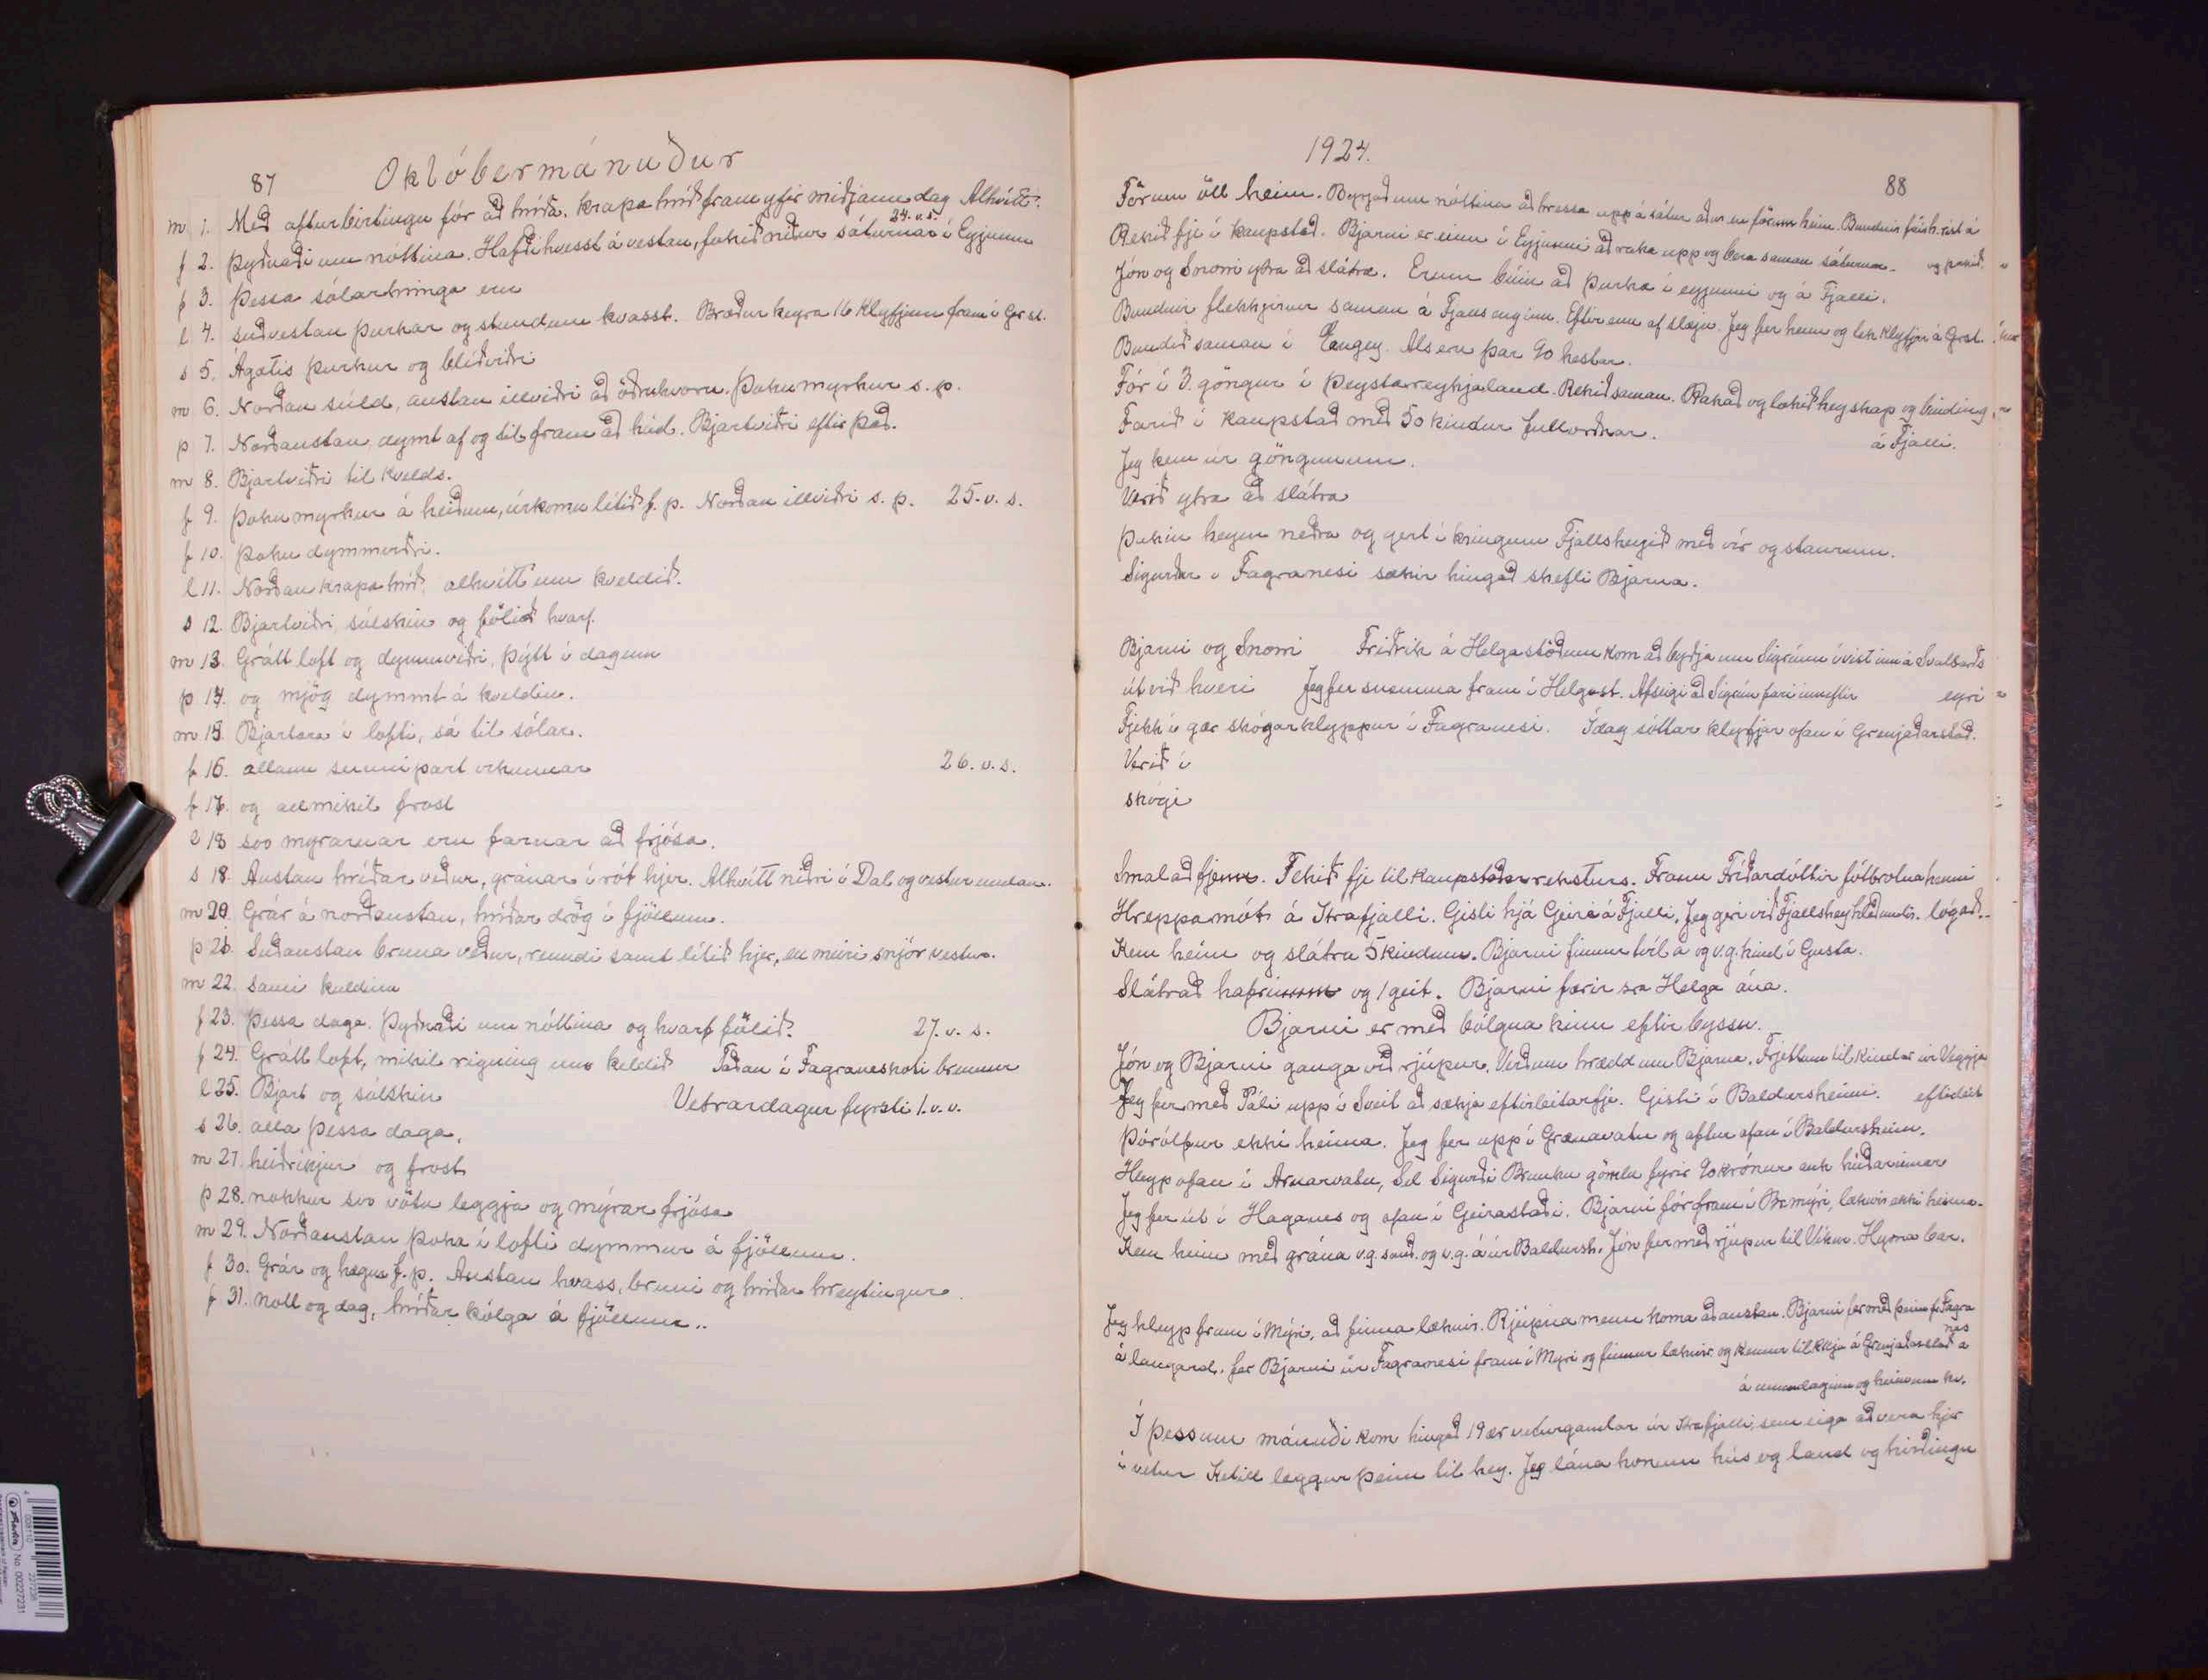 87 Októbermánuður
m 1. Með afturbirtingu fór að hríða. Krapahríð fram yfir miðjann dag Alhvítt.
f 2. Þyðnaði um nóttina. Hafði hvesst á vestan, fokið niður sáturnar í Eyjunni 24. v. s.
f 3. Þessa sólarhringa eru
l 4. suðvestan þurkar og stundum kvasst. Bræður keyra 16 klyfjum fram í Gr st.
s 5. Ágætis þurkur og blíðviðri
m 6. Norðan súld, austan illviðri að öðruhvoru. Þokumyrkur s. p.
þ 7. Norðaustan, dymt af og til fram að hád. Bjartviðri eftir það.
m 8. Bjartviðri til kvelds.
f 9. Þokumyrkur á heiðum, úrkomulítið f. p. Norðan illviðri s. p. 25. v. s.
f 10. Þoku dymmviðri.
l 11. Norðan krapahríð, alhvítt um kveldið.
s 12. Bjartviðri, sólskin og fölið hvarf.
m 13. Grátt loft og dymmviðri, þýtt í dagum
þ 14. og mjög dymmt á kveldin.
m 15. Bjartara í lofti, sá til sólar.
f 16. allann sunnipart vikunnar 26. v. s.
f 17. og allmikil frost
l 18 svo myrarnar eru farnar að frjósa.
s 19. Austan hríðarveður, gránar í rót hjer. Alhvítt niðri í Dal og vestur undan.
m 20. Grár á norðaustan, hríðar drög í fjöllum.
þ 21. Suðaustan bruna veður, renndi samt lítið hjer, en meiri snjór vestur.
m 22. Sami kuldinn
f 23. þessa daga. Þyðnaði um nóttina og hvarf fölið. 27. v. s.
f 24. Grátt loft, mikil rigning um keldið Taðan í Fagraneskoti brennur
l 25. Bjart og sólskin Vetrardagur fyrsti 1. v. v.
s 26. alla þessa daga,
m 27. heiðríkjur og frost
þ 28. nokkur svo vötn leggja og mýrar frjósa
m 29. Norðaustan þoka í lofti dymmur á fjöllum.
f 30. Grár og hægur f. p. Austan hvass, bruni og hríðar hreytingur.
f 31. nótt og dag, hríðar kólga á fjöllum..
1924. 88
Förum öll heim. Byrjað um nóttina að hressa upp á sátur aður en förum heim. Bundnir
Rekið fje í kaupstað. Bjarni er einn í Eyjunni að raka upp og bera saman sáturnar. og þakið
Jón og Snorri ytra að slátra. Erum búin að þurka í eyjunni og á Fjalli.
Bundnir flekkjirnir saman á Fjalls enginu. Eftir enn af slægju. Jeg fer heim og tek klyfjar á Grst.
Bundið saman í Eangey. Als eru þar 90 hestar.
Fór í 3. göngur í Þeystarreykjaland. Rekið saman. Rakað og lokið heyskap og binding
Farið í kaupstað með 50 kindur fullorðnar. á Fjalli.
Jeg kem úr göngunum.
Verið ytra að slátra
Þakin heyin neðra og gert í kringum Fjallsheyið með vír og staurum.
Sigurður í Fagranesi sækir hingað skefli Bjarna.
Bjarni og Snorri Friðrik á Helgastöðum kom að byðja um Sigrúnu í vist inn á Svalbarðs
út við hveri Jeg fer snemma fram í Helgast. Afseigi að Sigrún fari inneftir eyri
Fjekk í gær skógarklyppur í Fagranesi. Ídag sóttar klyfjar ofan í Grenjaðarstað.
Verið í
skógi
Smalað fjenu. Tekið fje til kaupstaðarreksturs. Frann Friðardóttir fótbrotnaheimi
Hreppamót á Hrafjalli. Gisti hjá Geira á Fjalli, Jeg geri við Fjallsheyhlöðuntir. lógað
Kem heim og slátra 5 kindum. Bjarni finnur tvíl á og v.g. kind í Gusta.
Slátrað hafrinum og 1 geit. Bjarni færir sra Helga ána.
Bjarni er með bólgna kinn eftir byssu.
Jón og Bjarni ganga við rjúpur. Verðum hrædd um Bjarna. Frjettum til kindar úr Veggja
Jeg fer með Páli upp í Sveit að sækja eftirleitarfje. Gisti í Baldursheimi. eftirleit
Þórólfur ekki heima. Jeg fer upp í Grænavatn og aftur ofan í Baldursheim.
Hleyp ofan í Arnarvatn, Sel Sigurði Brunku gömlu fyrir 90 krónur auk húðarinnar
Jeg fer út í Haganes og ofan í Geirastaði. Bjarni fór fram í Br.mýri, læknir ekki heima.
Kem heim með grána v.g. sauð. og v.g. á úr Baldursh. Jón fer með rjúpur til Víkur. Hyrna bar.
Jeg hleyp fram í Mýri, að finna læknir. Rjúpna menn koma að austan. Bjarni fer með þeim f. Fagra
nes
á laugard. fer Bjarni úr Fagranesi fram í Mýri og finnur læknir og kemur til kkju á Grenjaðarstað a
á sunnudaginn og heim um kv.
Í þessum mánuði kom hingað 19 ær veturgamlar úr Hrafjalli, sem eiga að vera hjer
í vetur Ketill leggur þeim til hey. Jeg lána honum hús og land og hirðingu